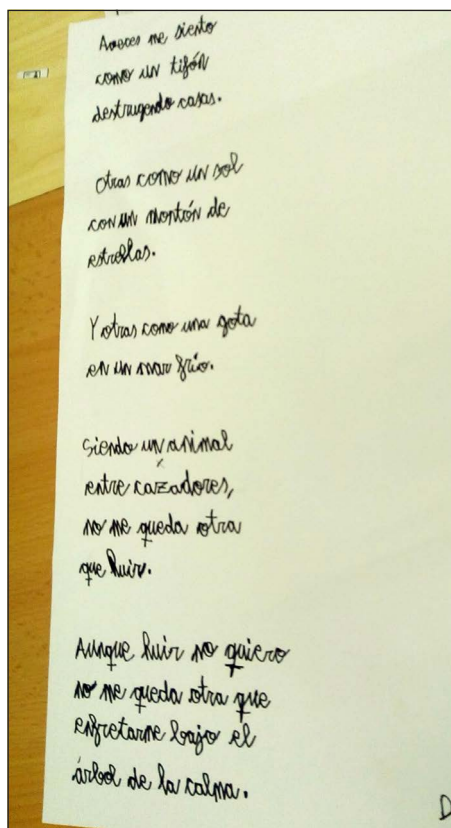 Aveces me siento
como un tifón
destrugendo casas.
Otras como un sol
con un montón de
estrellas.
Y otras como una gota
en un mar frío.
Siendo un animal
entre cazadores,
no me queda otra
que huir.
Aunque huir no quiero
no me queda otra que
enfretarme bajo el
árbol de la calma.
D